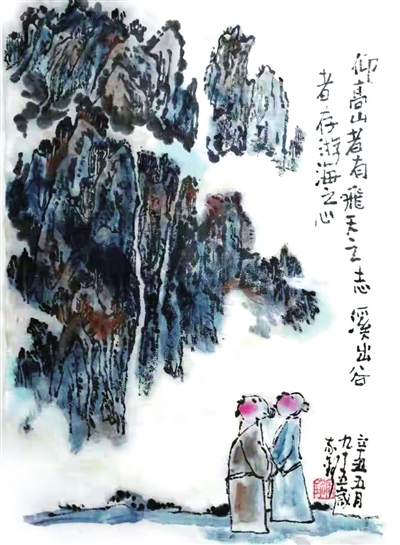 仰高山者有飛天之志 溪出谷
者存游海之心
辛丑五月
九十五歲